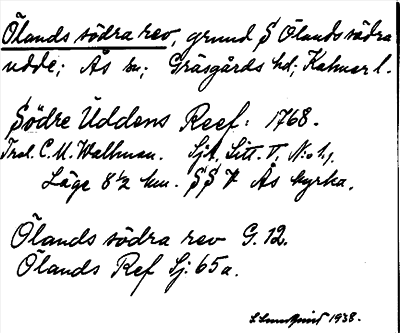 Ölands södra rev, grund S Ölands södra
udde; Ås sn; Gräsgårds hd; Kalmar l.
Södre Uddens Reef: 1768.
Trol. C. M. Wallman. Sjk, Litt. V, N:o 1,
Läge 8½ km. S§ V Ås kyrka.
Ölands södra rev G. 12.
Ölands Ref Sj: 65a.
1938.